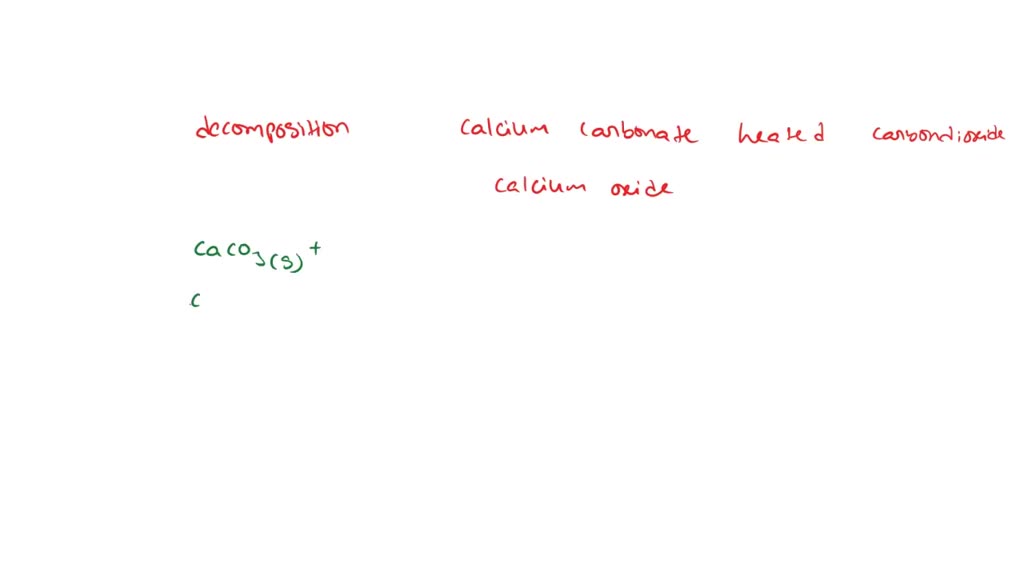 decomposition calcium carbonate heated carbondioxide
calcium oxide
CaCO₃(s) +
C